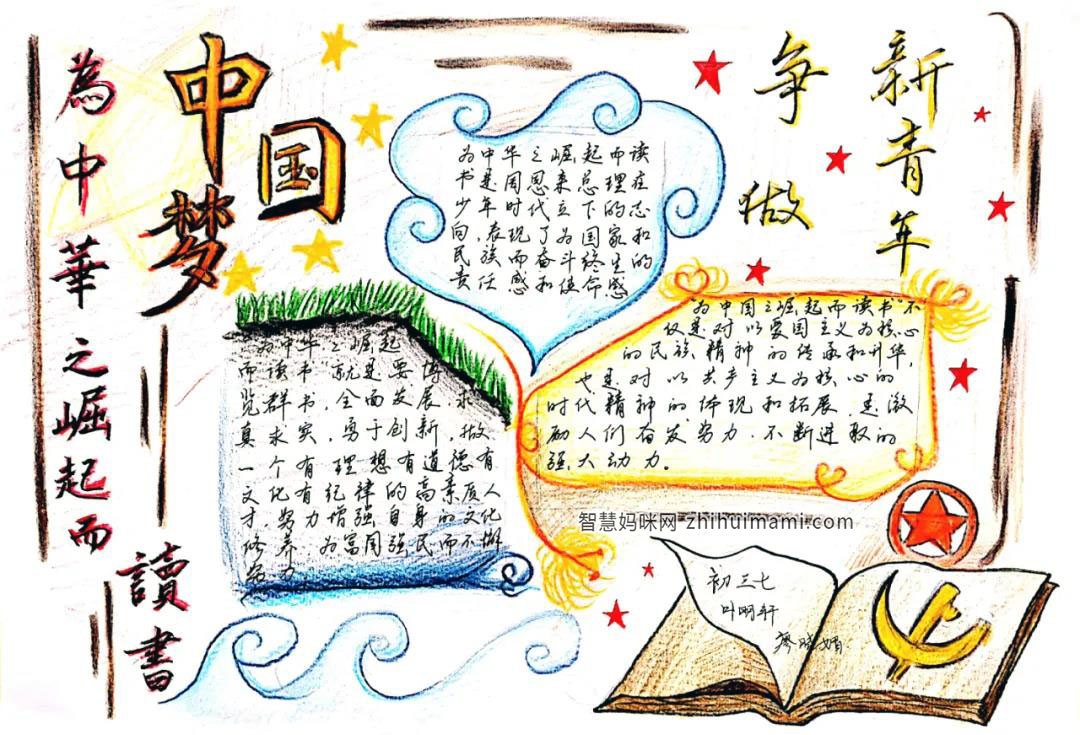 為中華之崛起而
讀書
中国
梦
争做
新青年
为中华之崛起而读
书是周恩来总理在
少年时代立下的志
向,表现了为国家和
民族而奋斗终生的
责任感和使命感
为中华之崛起
而读书,就是要博
览群书,全面发展,求
真求实,勇于创新,做
一个有理想有道德有
文化有纪律的高素质人
才,努力增强自身的文化
修养,为富国强民而不懈
努力。
"为中国之崛起而读书"不
仅是对以爱国主义为核心
的民族精神的传承和升华,
也是对以共产主义为核心的
时代精神的体现和拓展,是激
励人们奋发努力,不断进取的
强大动力。
智慧妈咪网-zhihuimami.com
初三七